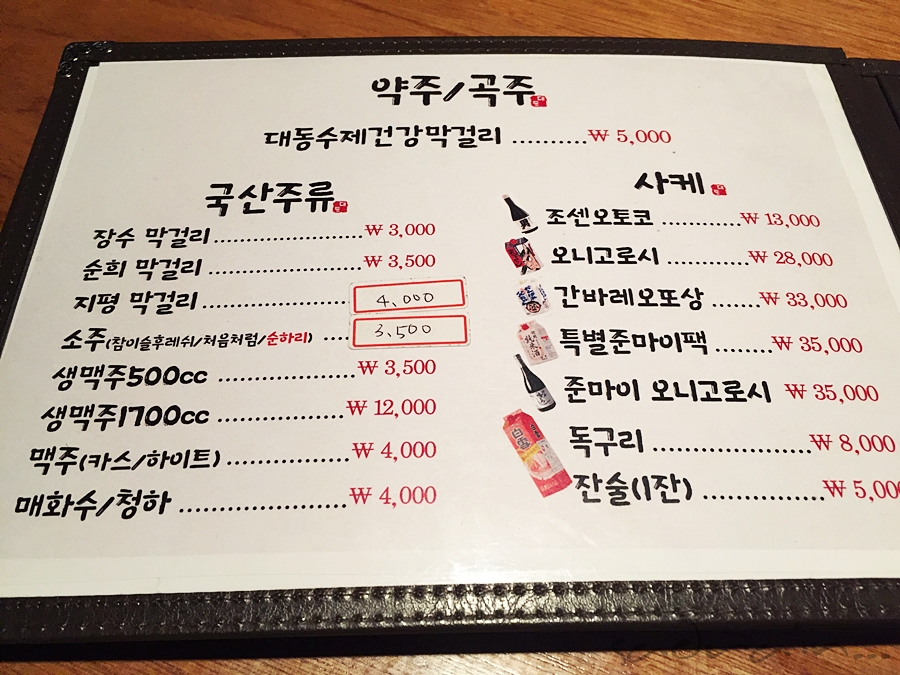 약주/곡주
대동수제건강막걸리 ..........₩ 5,000
국산주류
장수 막걸리......................₩ 3,000
순희 막걸리 ......................₩ 3,500
지평 막걸리...................... 4,000
소주(참이슬후레쉬/처음처럼/순하리) .... 3,500
생맥주500cc ....................₩ 3,500
생맥주1700cc ..................₩ 12,000
맥주(카스/하이트) ................₩ 4,000
매화수/청하 ......................₩ 4,000
사케
조센오토코 ..........₩ 13,000
오니고로시 ...........₩ 28,000
간바레오또상 ......₩ 33,000
특별준마이팩 ........₩ 35,000
준마이 오니고로시 ₩ 35,000
독구리 .....................₩ 8,000
잔술(1잔) ................₩ 5,00
白雪